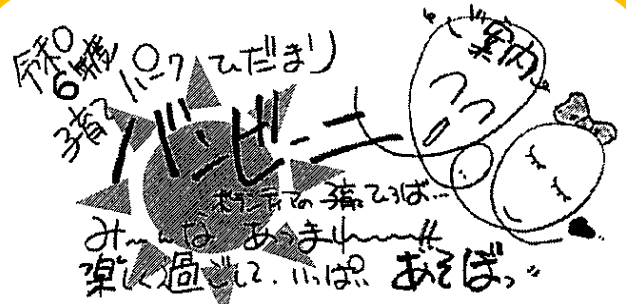 令和6年度
子育てパークひだまり
ご案内
バンビーニ
ボランティアの子育てひろば…
み〜んなあつまれ〜〜!!
楽しく過ごして、いっぱいあそぼっ